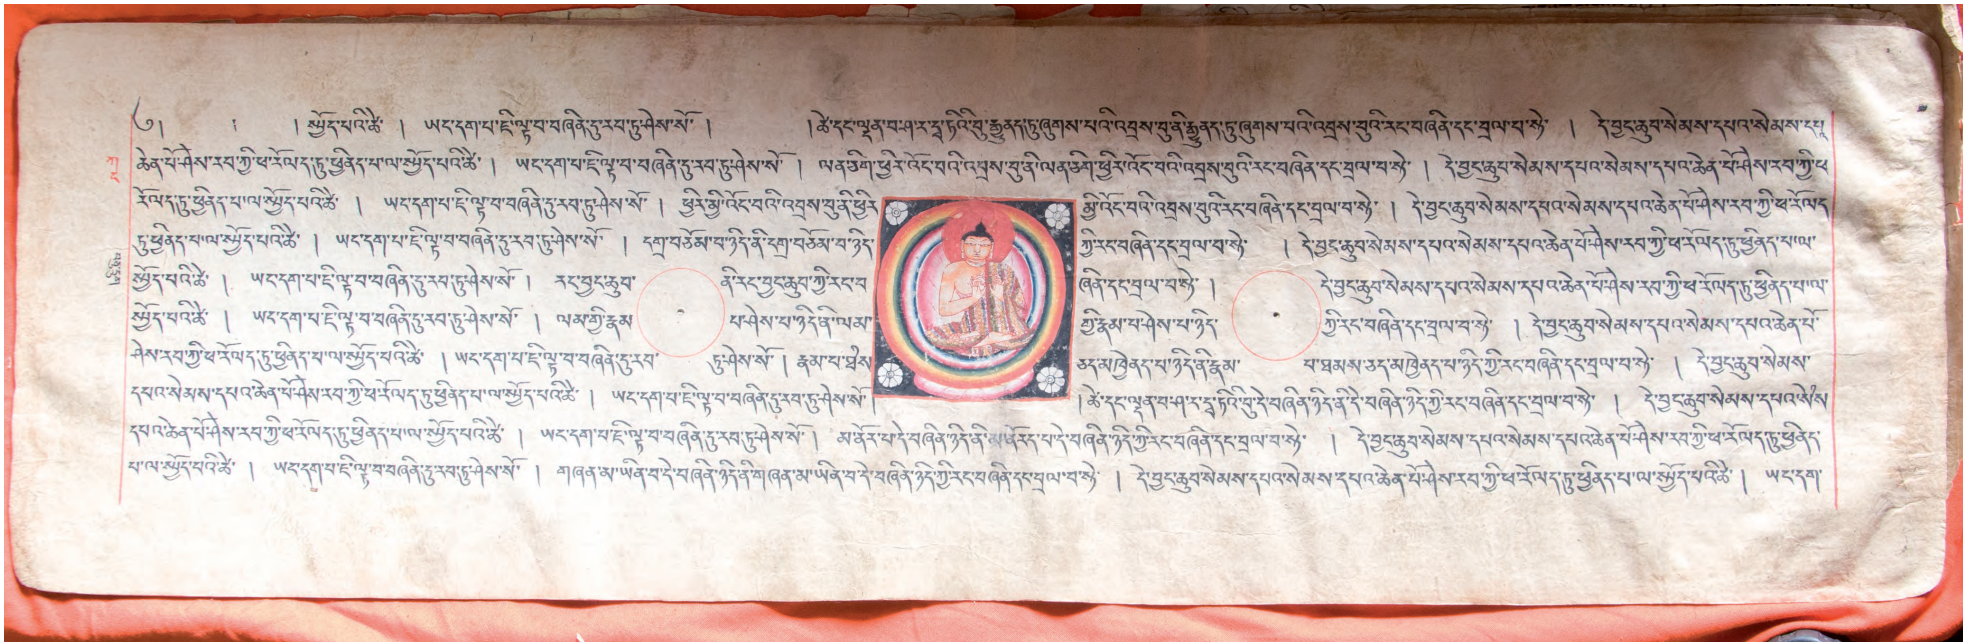 ༄། ། །སྤྱོད་པའི་ཚེ་ ། ཡང་དག་པ་ཇི་ལྟ་བ་བཞིན་དུ་རབ་ཏུ་ཤེས་སོ་ ། །ཚེ་དང་ལྡན་བ་ཤ་ར་དྭ་ཏིའི་བུ་རྒྱུནད་ཏུ་ཞུགས་པའི་འབྲས་བུ་ནི་རྒྱུནད་ཏུ་ཞུགས་པའི་འབྲས་བུའི་རང་བཞིན་དང་བྲལ་བ་སྟེ་ ། དེ་བྱང་ཆུབ་སེམས་དཔའ་སེམས་དཔཱ
ཆེན་པོ་ཤེས་རབ་ཀྱི་ཕ་རོལད་ཏུ་ཕྱིནད་པ་ལ་སྤྱོད་པའི་ཚེ་ ། ཡང་དག་པ་ཇི་ལྟ་བ་བཞིན་དུ་རབ་ཏུ་ཤེས་སོ་ ། ལན་ཅིག་ཕྱིར་འོང་བའི་འབྲས་བུ་ནི་ལན་ཅིག་ཕྱིར་འོང་བའི་འབྲས་བུའི་རང་བཞིན་དང་བྲལ་བ་སྟེ་ ། དེ་བྱང་ཆུབ་སེམས་དཔའ་སེམས་དཔའ་ཆེན་པོ་ཤེས་རབ་ཀྱི་ཕ
རོལད་ཏུ་ཕྱིནད་པ་ལ་སྤྱོད་པའི་ཚེ་ ། ཡང་དག་པ་ཇི་ལྟ་བ་བཞིན་དུ་རབ་ཏུ་ཤེས་སོ་ ། ཕྱིར་མྱི་འོང་བའི་འབྲས་བུ་ནི་ཕྱིར མྱི་འོང་བའི་འབྲས་བུའི་རང་བཞིན་དང་བྲལ་བ་སྟེ་ ། དེ་བྱང་ཆུབ་སེམས་དཔའ་སེམས་དཔའ་ཆེན་པོ་ཤེས་རབ་ཀྱི་ཕ་རོལད
ཏུ་ཕྱིནད་པ་ལ་སྤྱོད་པའི་ཚེ་ ། ཡང་དག་པ་ཇི་ལྟ་བ་བཞིན་དུ་རབ་ཏུ་ཤེས་སོ་ ། དགྲ་བཅོམ་བ་ཉིད་ནི་དགྲ་བཅོམ་བ་ཉིད་ ཀྱི་རང་བཞིན་དང་བྲལ་བ་སྟེ་ ། དེ་བྱང་ཆུབ་སེམས་དཔའ་སེམས་དཔའ་ཆེན་པོ་ཤེས་རབ་ཀྱི་ཕ་རོལད་ཏུ་ཕྱིནད་པ་ལ་
སྤྱོད་པའི་ཚེ་ ། ཡང་དག་པ་ཇི་ལྟ་བ་བཞིན་དུ་རབ་ཏུ་ཤེས་སོ་ ། རང་བྱང་ཆུབ་ ནི་རང་བྱང་ཆུབ་ཀྱི་རང་བ ཞིན་དང་བྲལ་བ་སྟེ་ ། དེ་བྱང་ཆུབ་སེམས་དཔའ་སེམས་དཔའ་ཆེན་པོ་ཤེས་རབ་ཀྱི་ཕ་རོལད་ཏུ་ཕྱིནད་པ་ལ་
སྤྱོད་པའི་ཚེ་ ། ཡང་དག་པ་ཇི་ལྟ་བ་བཞིན་དུ་རབ་ཏུ་ཤེས་སོ་ ། ལམ་ཀྱི་རྣམ པ་ཤེས་པ་ཉིད་ནི་ལམ་ ཀྱི་རྣམ་པ་ཤེས་པ་ཉིད་ ཀྱི་རང་བཞིན་དང་བྲལ་བ་སྟེ་ ། དེ་བྱང་ཆུབ་སེམས་དཔའ་སེམས་དཔའ་ཆེན་པོ་
ཤེས་རབ་ཀྱི་ཕ་རོལད་ཏུ་ཕྱིནད་པ་ལ་སྤྱོད་པའི་ཚེ་ ། ཡང་དག་པ་ཇི་ལྟ་བ་བཞིན་དུ་རབ་ ཏུ་ཤེས་སོ་ ། རྣམ་པ་ཐཾས ཅད་མ་ཁྱེནད་པ་ཉིད་ནི་རྣམ་ པ་ཐམས་ཅད་མ་ཁྱེནད་པ་ཉིད་ཀྱི་རང་བཞིན་དང་བྲལ་བ་སྟེ་ ། དེ་བྱང་ཆུབ་སེམས་
དཔའ་སེམས་དཔའ་ཆེན་པོ་ཤེས་རབ་ཀྱི་ཕ་རོལད་ཏུ་ཕྱིནད་པ་ལ་སྤྱོད་པའི་ཚེ་ ། ཡང་དག་པ་ཇི་ལྟ་བ་བཞིན་དུ་རབ་ཏུ་ཤེས་སོ་ ། །ཚེ་དང་ལྡན་བ་ཤ་ར་དྭ་ཏིའི་བུ་དེ་བཞིན་ཉིད་ནི་དེ་བཞིན་ཉིད་ཀྱི་རང་བཞིན་དང་བྲལ་བ་སྟེ་ ། དེ་བྱང་ཆུབ་སེམས་དཔའ་སེཾས
དཔའ་ཆེན་པོ་ཤེས་རབ་ཀྱི་ཕ་རོལད་ཏུ་ཕྱིནད་པ་ལ་སྤྱོད་པའི་ཚེ་ ། ཡང་དག་པ་ཇི་ལྟ་བ་བཞིན་དུ་རབ་ཏུ་ཤེས་སོ་ ། མ་ནོར་པ་དེ་བཞིན་ཉིད་ནི་མ་ནོརད་པ་དེ་བཞིན་ཉིད་ཀྱི་རང་བཞིན་དང་བྲལ་བ་སྟེ་ ། དེ་བྱང་ཆུབ་སེམས་དཔའ་སེམས་དཔའ་ཆེན་པོ་ཤེས་རབ་ཀྱི་ཕ་རོལད་ཏུ་ཕྱིནད་
པ་ལ་སྤྱོད་པའི་ཚེ་ ། ཡང་དག་པ་ཇི་ལྟ་བ་བཞིན་དུ་རབ་ཏུ་ཤེས་སོ་ ། གཞན་མ་ཡིན་བ་དེ་བཞིན་ཉིད་ནི་གཞན་མ་ཡིན་བ་དེ་བཞིན་ཉིད་ཀྱི་རང་བཞིན་དང་བྲལ་བ་སྟེ་ ། དེ་བྱང་ཆུབ་སེམས་དཔའ་སེམས་དཔའ་ཆེན་པོ་ཤེས་རབ་ཀྱི་ཕ་རོལད་ཏུ་ཕྱིནད་པ་ལ་སྤྱོད་པའི་ཚེ་ ། ཡང་དག་